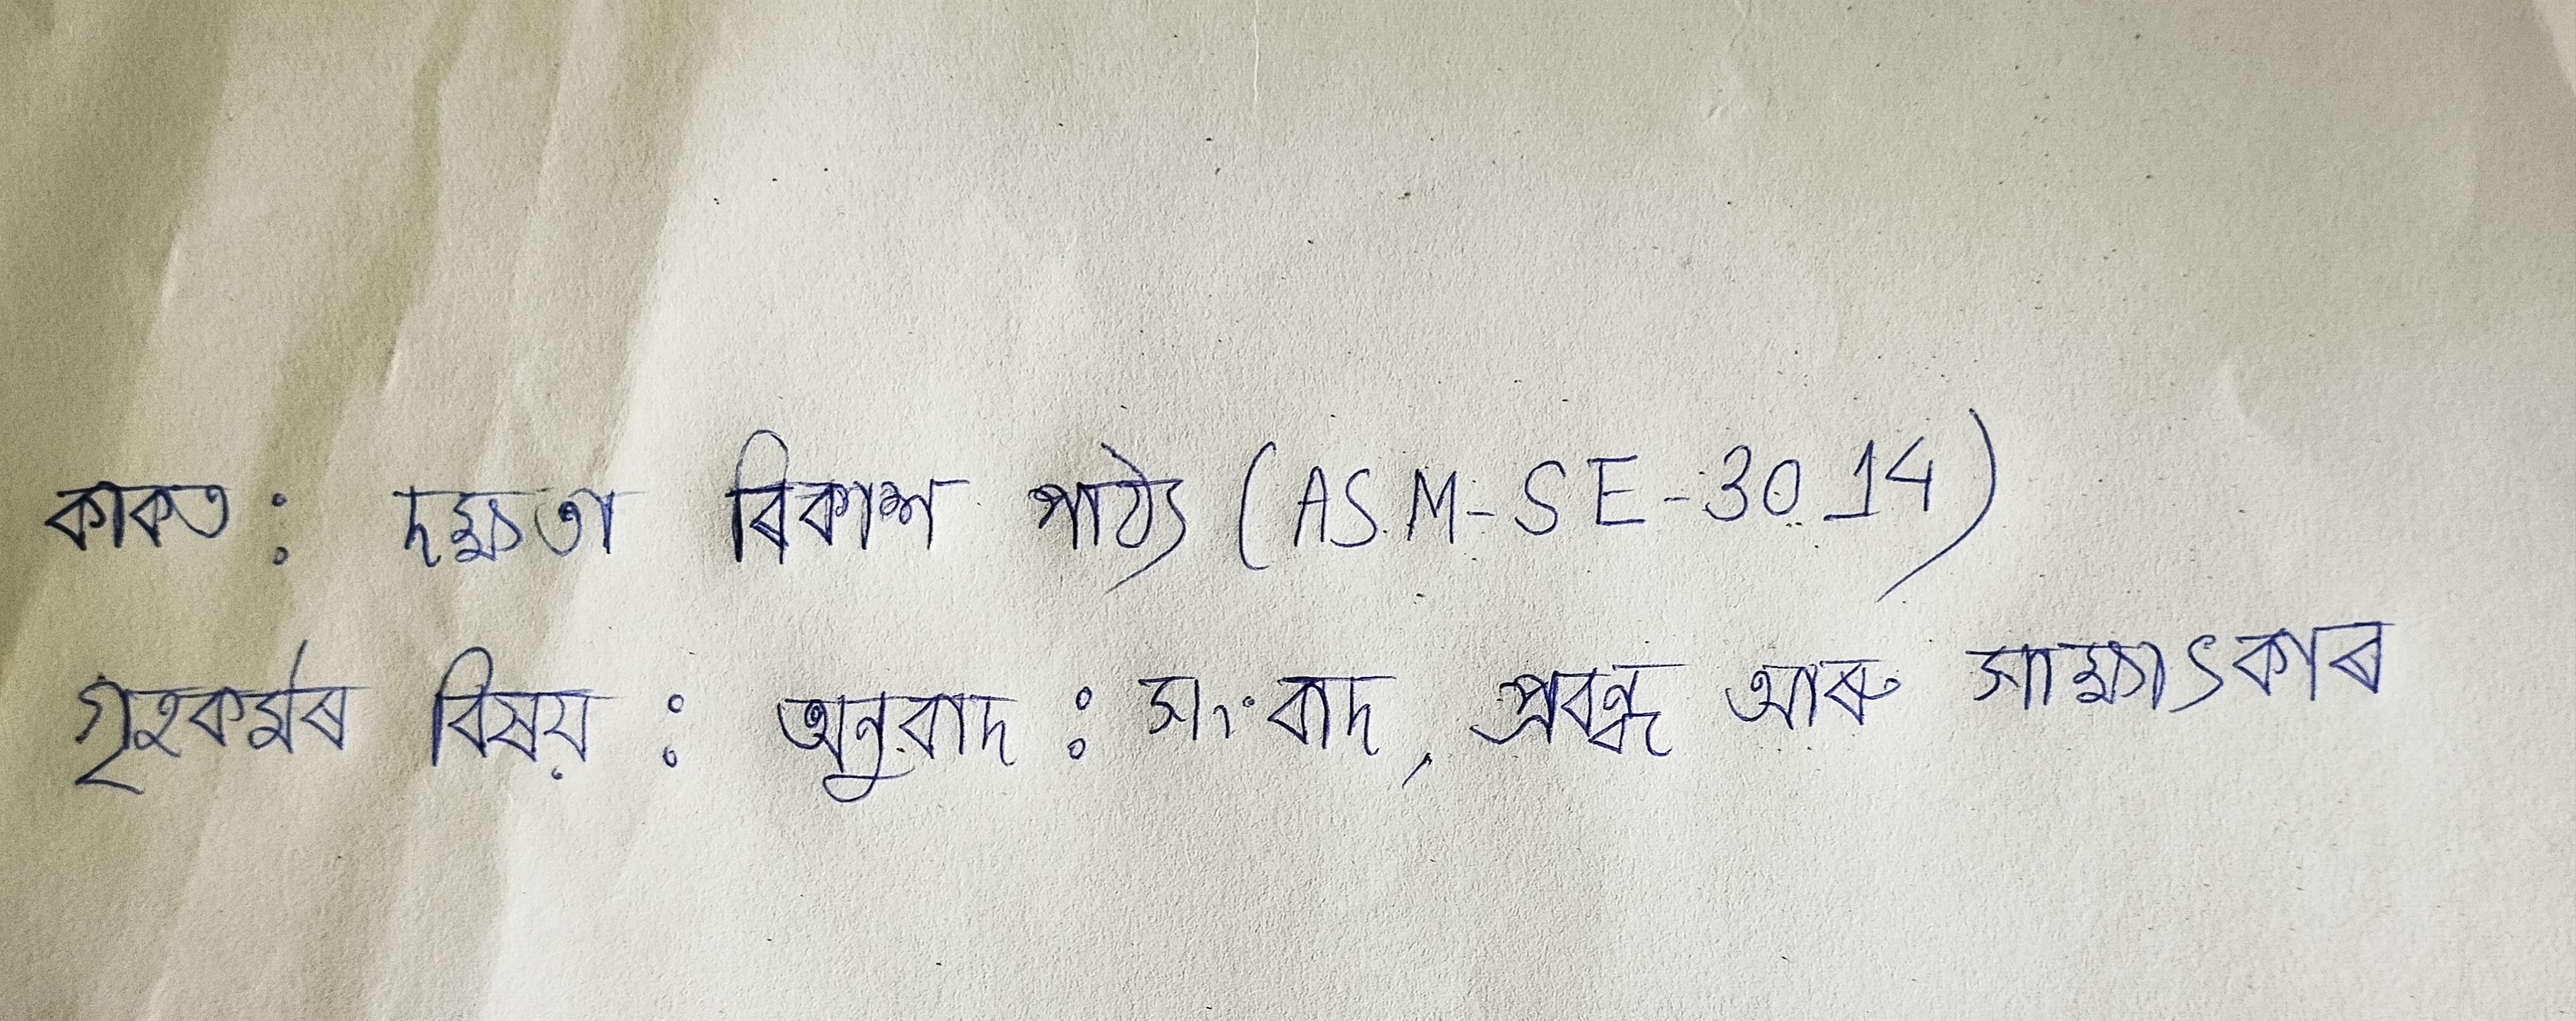 কাকত : দক্ষতা বিকাশ পাঠ্য (ASM-SE-3014)
গৃহকৰ্মৰ বিষয় : অনুবাদ : সংবাদ, প্ৰবন্ধ আৰু সাক্ষাৎকাৰ